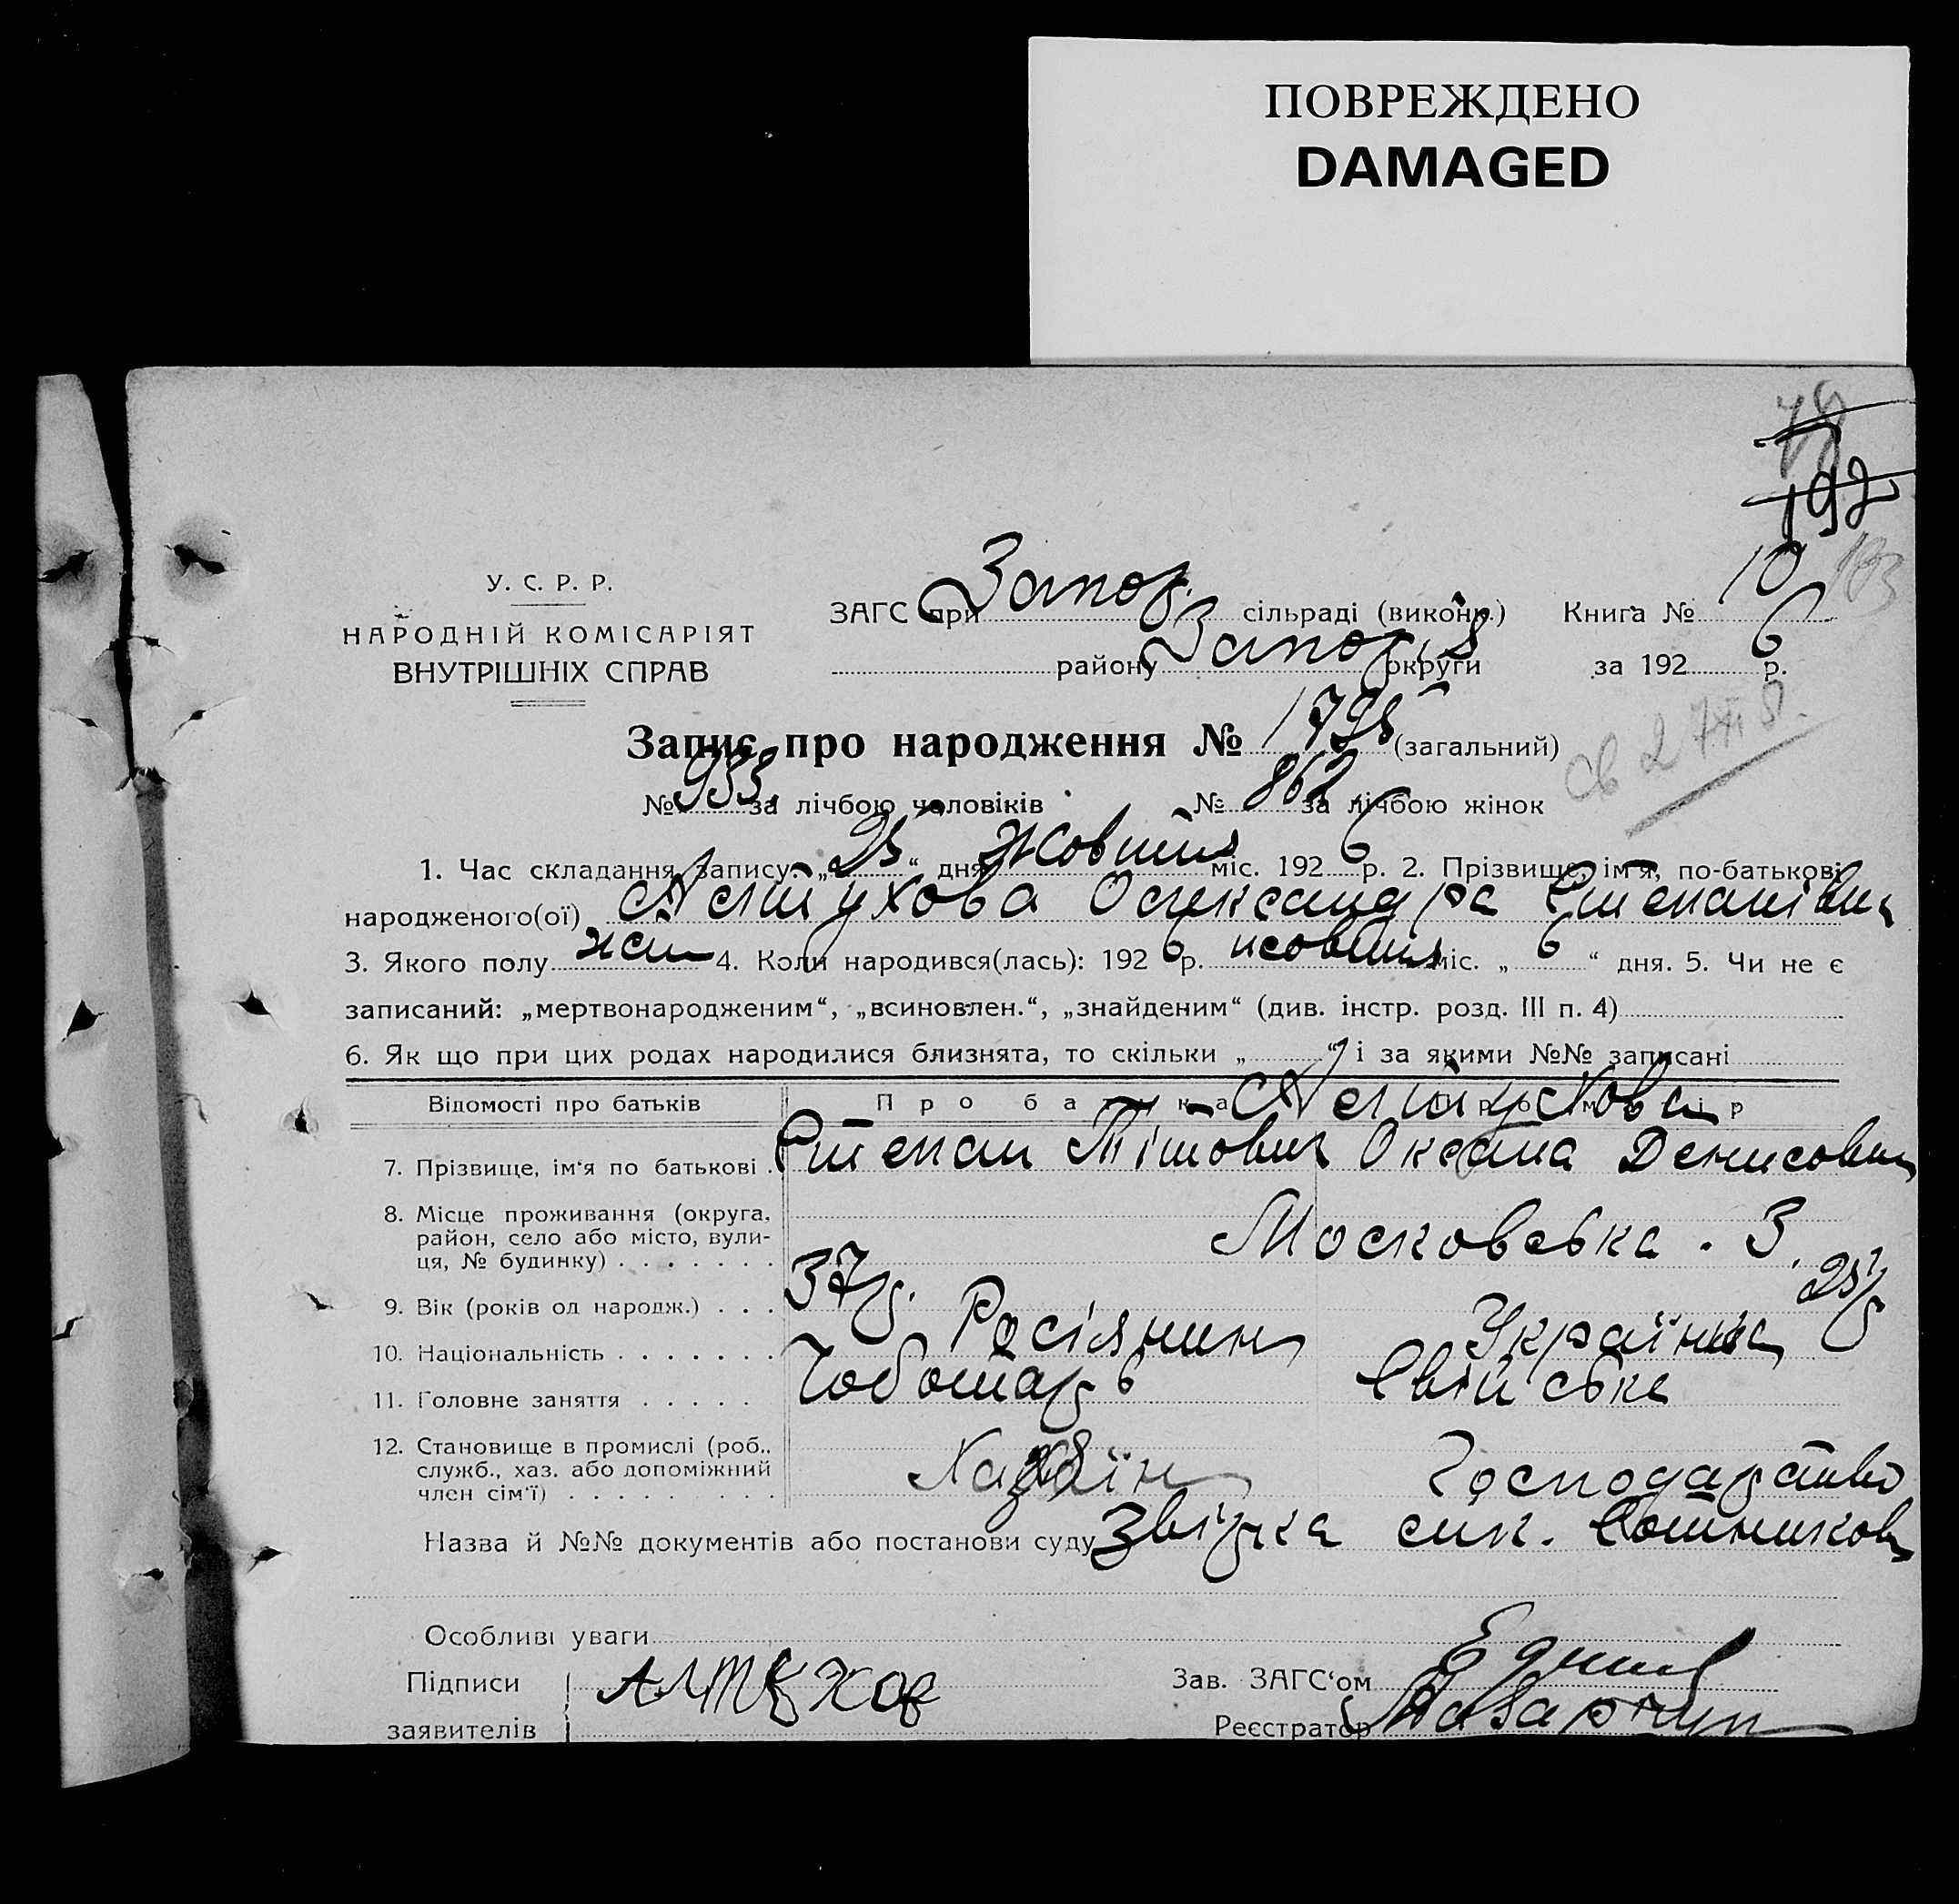 ПОВРЕЖДЕНО
DAMAGED
78
192
У. С. Р. Р.
НАРОДНІЙ КОМІСАРІЯТ
ВНУТРІШНІХ СПРАВ
ЗАГС при Запор. сільраді (виконк.) Книга № 10 103
району Запоріз округи за 192 6 р.
Запис про народження № 1795 (загальний)
№ 933 за лічбою чоловіків № 862 за лічбою жінок
1. Час складання запису: „25“ дня Жовтня міс. 192 6 р. 2. Прізвище, ім'я, по-батькові
народженого(ої) Алтухова Олександра Степанівна
3. Якого полу жен 4. Коли народився(лась): 192 6 р. жовтня міс. „ 6 “ дня. 5. Чи не є
записаний: „мертвонародженим“, „всиновлен.“, „знайденим“ (див. інстр. розд. III п. 4)
6. Як що при цих родах народилися близнята, то скільки „ “ і за якими №№ записані
Відомості про батьків Про батька Про матір
Алтухова
7. Прізвище, ім'я по батькові Степан Тітович Оксана Денисовна
8. Місце проживання (округа, район, село або місто, вулиця, № будинку) Московська . 3.
9. Вік (років од народж.) 37 р. 25 р
10. Національність Росіянин Українка
11. Головне заняття Чоботарь Свійське
12. Становище в промислі (роб., служб., хаз. або допоміжний член сім'ї) Хазяїн Господарство
Назва й №№ документів або постанови суду Звірка
Особливі уваги
Підписи Алтухов Зав. ЗАГС'ом
заявителів Реєстратор